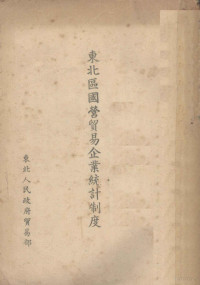 東北區國營貿易企業統計制度
東北人民政府貿易部